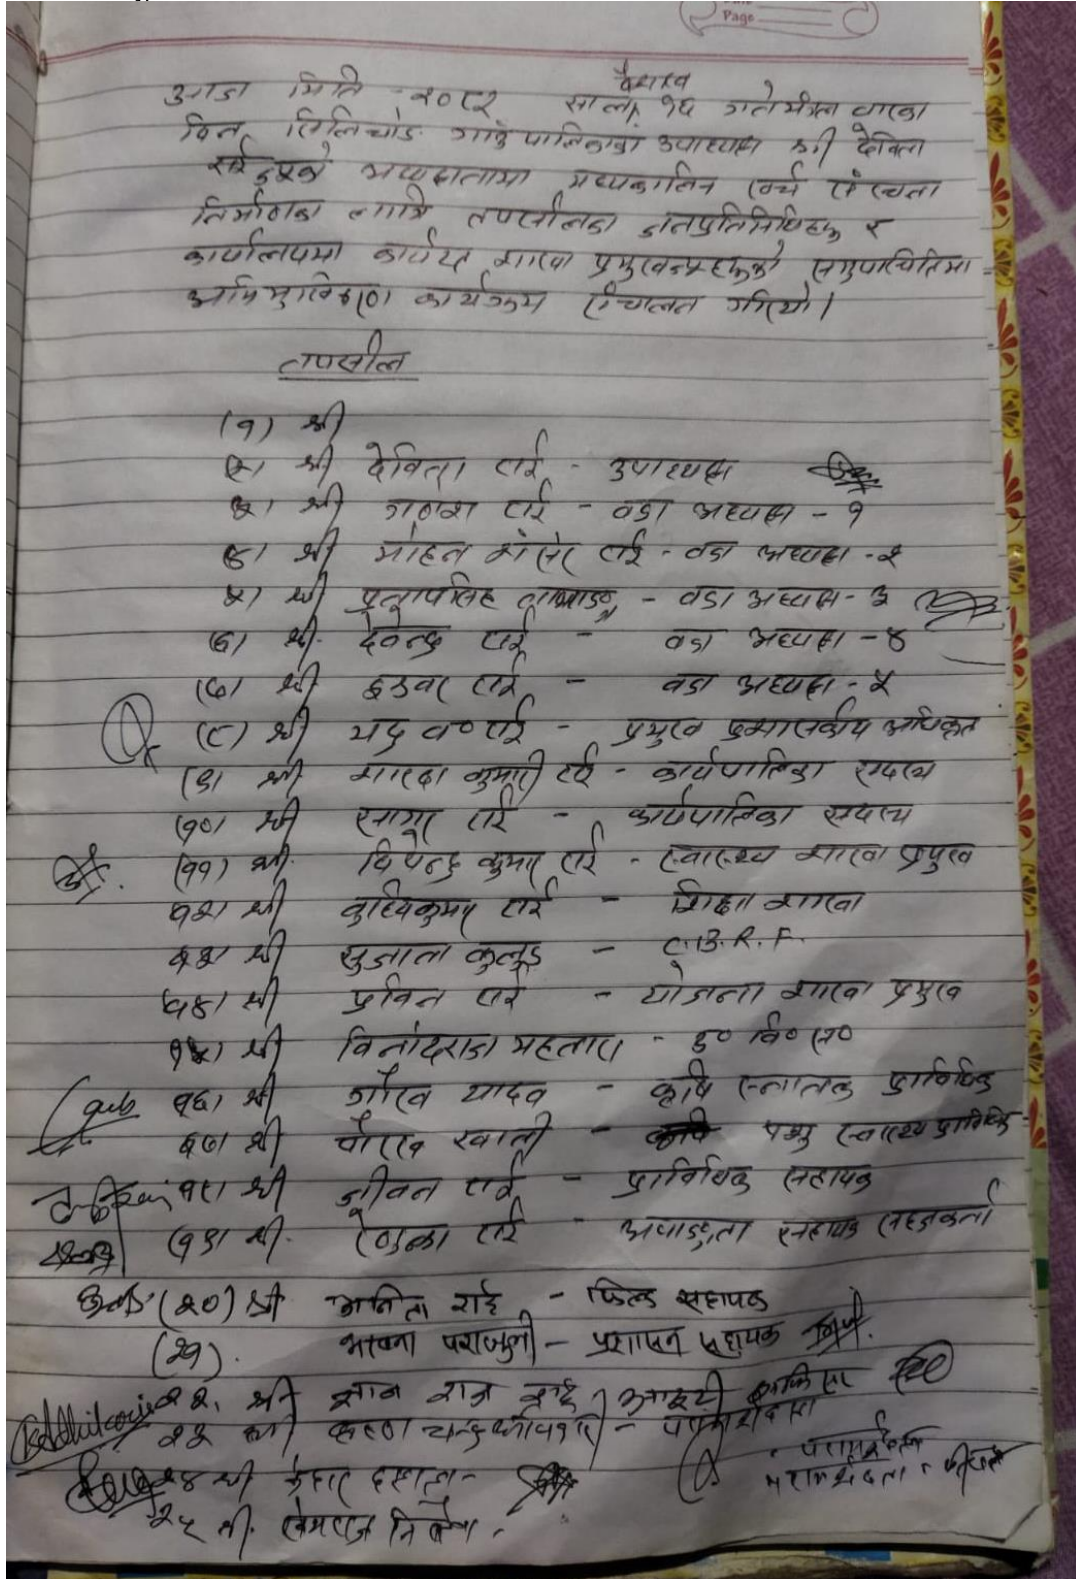 Page
बैशाख
आज मिति २०८२ साल १६ गते मंगलबारका
दिन सिलिचोङ गाउँपालिकाका उपाध्यक्ष श्री देविता
राईज्यूको अध्यक्षतामा मध्यकालिन खर्च संरचना
निर्माणका लागि तपसीलका जनप्रतिनिधिहरू र
कार्यालयमा कार्यरत शाखा प्रमुखज्यूहरूको समुपस्थितिमा
अभिमुखिकरण कार्यक्रम संचालन गरियो।
तपसील
(१) श्री
२। श्री देविता राई - उपाध्यक्ष
३। श्री गणेश राई - वडा अध्यक्ष - १
४। श्री मोहन शंसेर राई - वडा अध्यक्ष - २
५। श्री प्रतापसिंह - वडा अध्यक्ष - ३
(६) श्री देवेन्द्र राई - वडा अध्यक्ष - ४
(७) श्री राई - वडा अध्यक्ष - ५
(८) श्री यदु ब० राई - प्रमुख प्रशासकीय अधिकृत
(९) श्री शारदा कुमारी राई - कार्यपालिका सदस्य
१०। श्री सागर राई - कार्यपालिका सदस्य
(११) श्री दिपेन्द्र कुमार राई - स्वास्थ्य शाखा प्रमुख
१२। श्री बुद्धिकुमार राई - शिक्षा शाखा
१३। श्री सुजाता कुलुङ - C.B.R.F.
१४। श्री प्रविन राई - योजना शाखा प्रमुख
१५) श्री विनोदराज महतारा -
१६। श्री गौरव यादव - कृषि स्नातक प्राविधिक
१७। श्री - पशु स्वास्थ्य प्राविधिक
१८। श्री जीवन राई - प्राविधिक सहायक
(१९) श्री रेणुका राई - अपाङ्गता सहायक सहजकर्ता
(२०) श्री अनिता राई - फिल्ड सहायक
(२१). भावना पराजुली - प्रशासन सहायक
२२. श्री ज्ञान राज राई, आइटी अफिसर
२३ श्री चन्द्र -
२४ श्री केदार दाहाल -
२५ श्री. खेमराज निरौला -